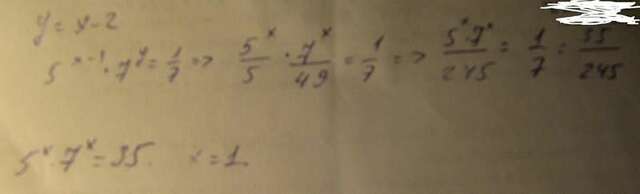 y = x - 2
5^(x-1) · 7^y = 1/7 => 5^x/5 · 7^x/49 = 1/7 => 5^x · 7^x/245 = 1/7 = 35/245
5^x · 7^x = 35. x = 1.